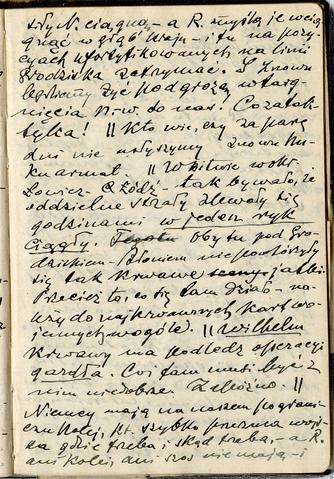 siły N. ciągną, – a R. myślą je wcią
gnąć w głąb kraju – i tu na pozy-
cyach ufortyfikowanych na linii
Grodziska zatrzymać. I znowu
będziemy żyć pod grozą wtarg-
nięcia N-w. do nas! Co za tak-
tyka! || Kto wie, czy za parę
dni nie usłyszymy znowu hu-
ku armat. || W bitwie wokół
Łowicz – Łódź – tak bywało, że
oddzielne strzały zlewały się
godzinami w jeden ryk
ciągły. Oby tu pod Gro-
dziskiem – Błoniem nie powtórzyły
się tak krwawe jatki.
Przecież to, co się tam działo – na-
leży do najkrwawszych kart wo-
jennych wogóle. || Wilhelm
Krwawy ma podledz operacyi
gardła. Coś tam musi być z
nim niedobrze. ||
Niemcy mają na naszem pograni-
czu kolej, kt. szybko przesuną wojs-
ka gdzie trzeba i skąd trzeba, – a R.
ani kolei, ani szos nie mają – i